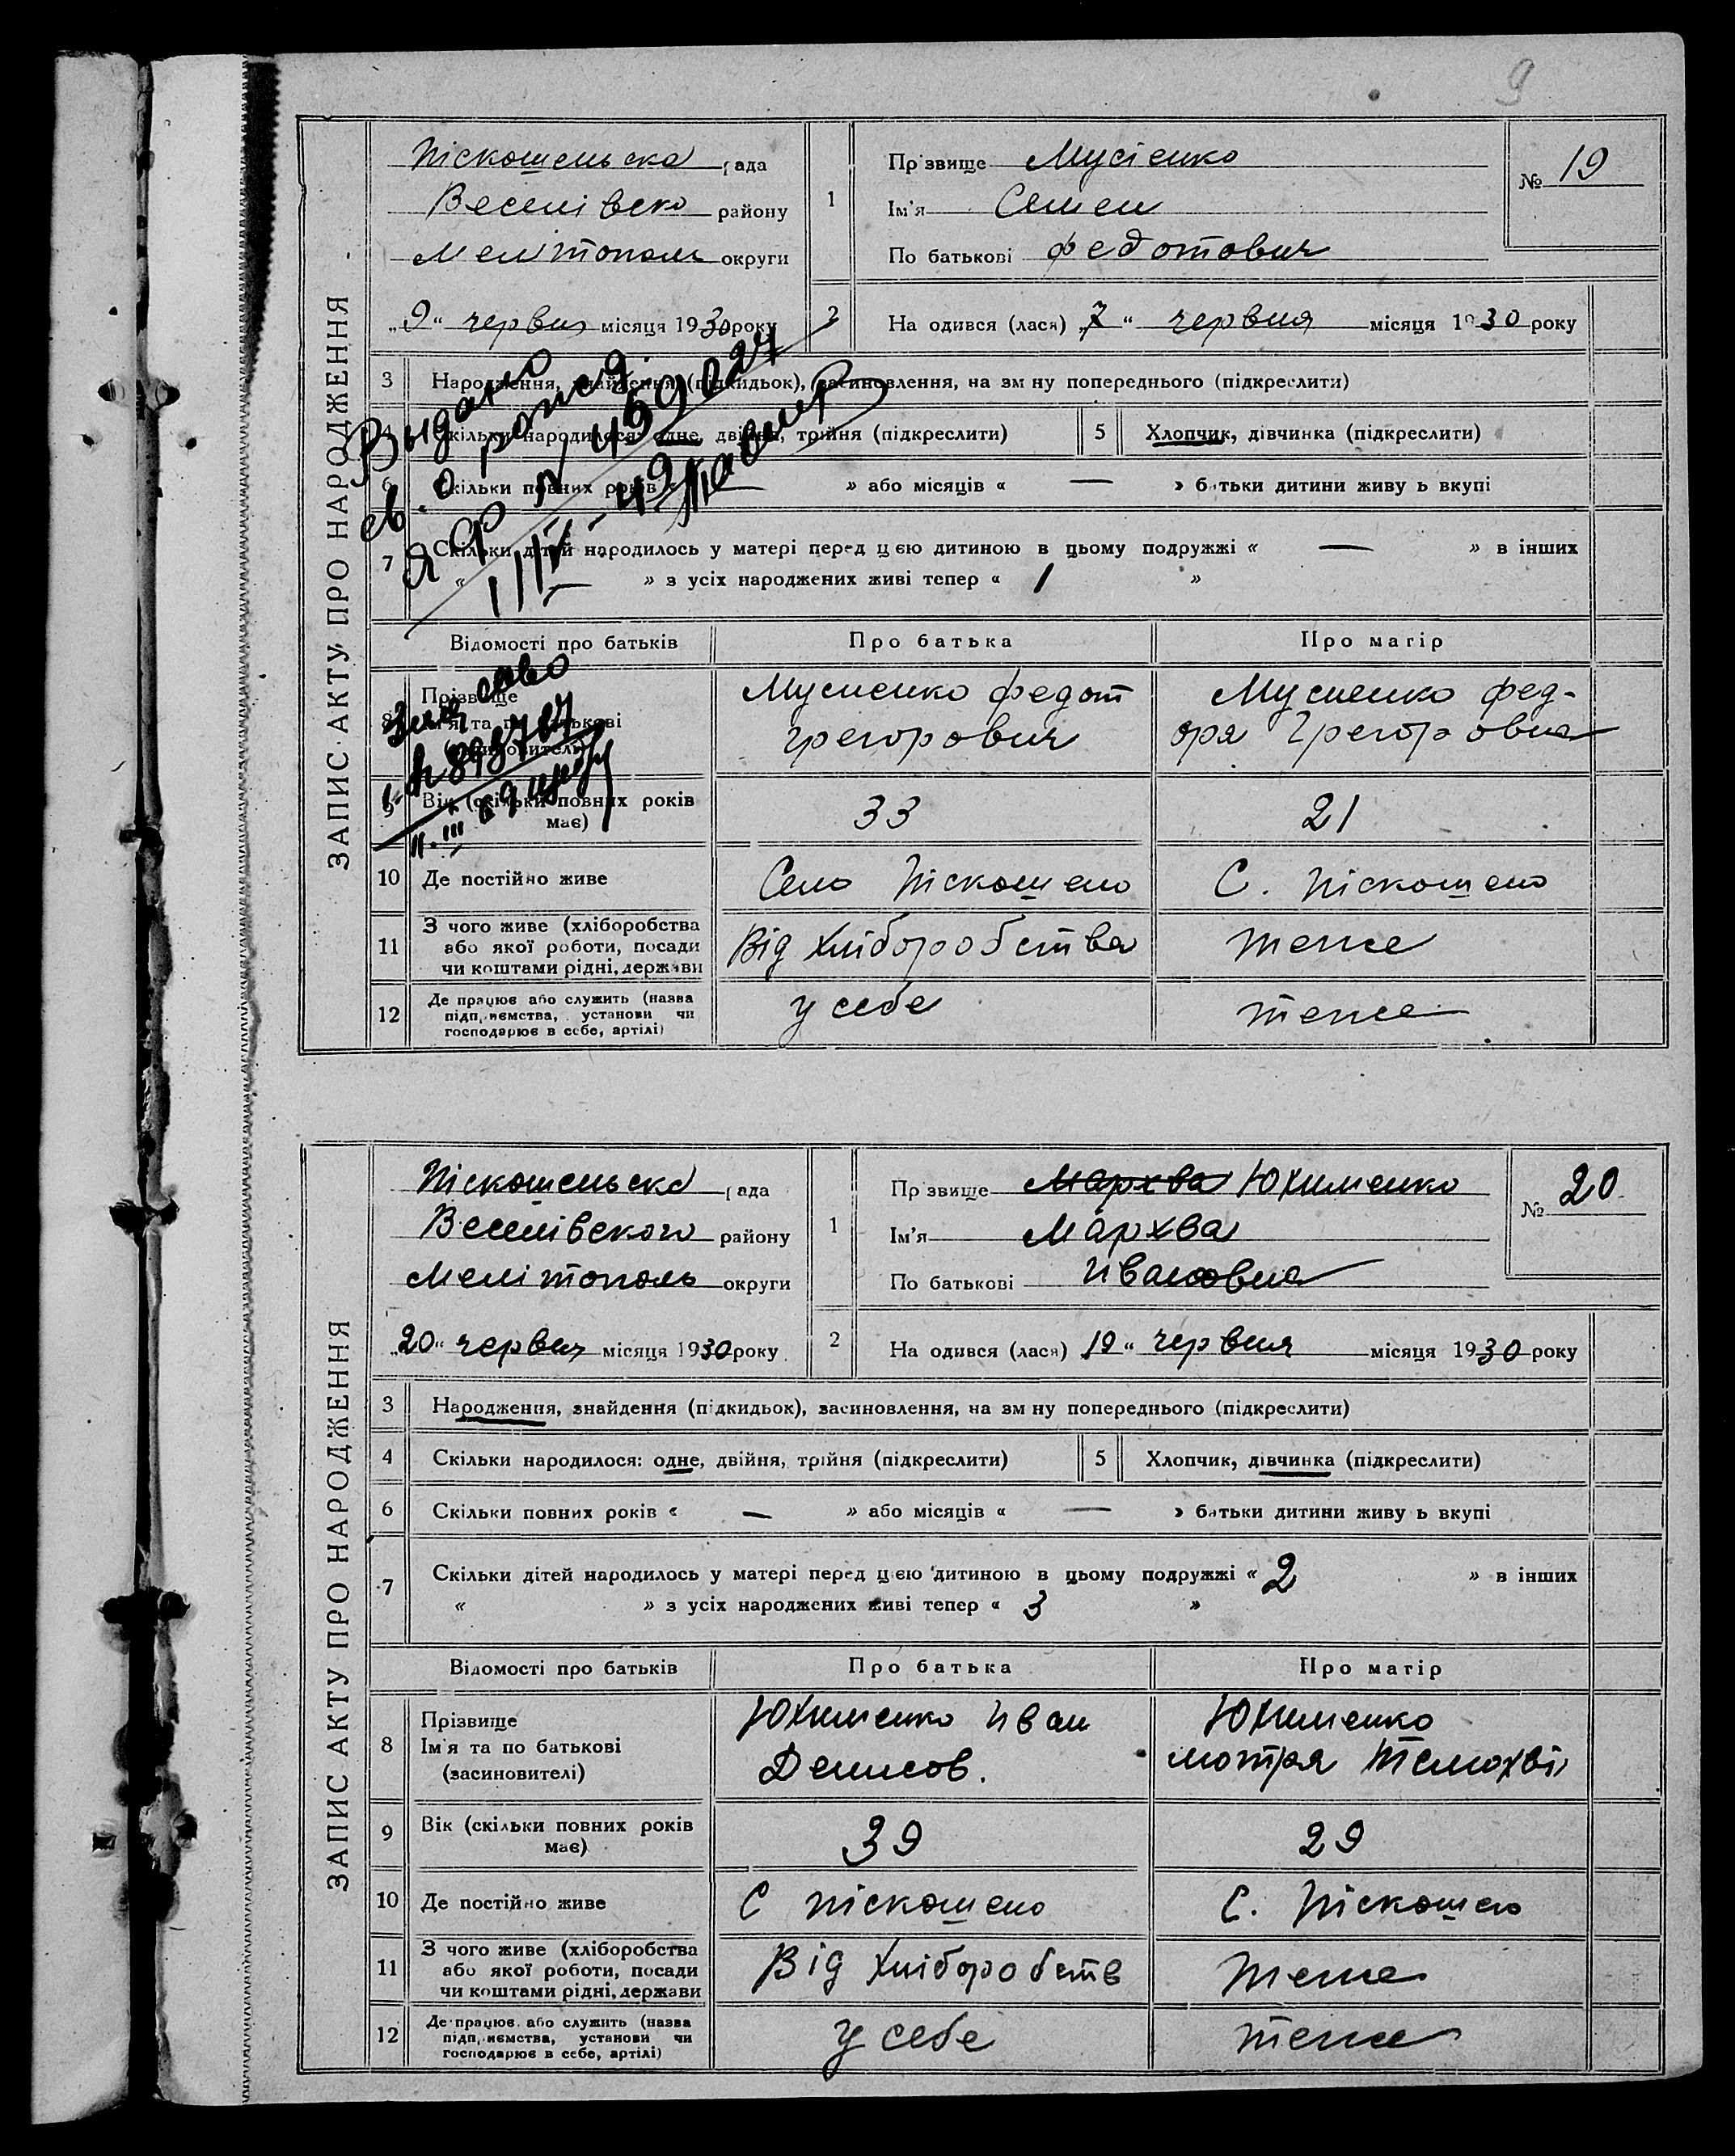 9
ЗАПИС АКТУ ПРО НАРОДЖЕННЯ
Піскошельска рада
Веселівско району
Мелітополь округи
„9“ червня місяця 1930 року
1
Прізвище Мусіенко
Ім'я Семен
По батькові Федотович
№ 19
2
На одився (лася) „7“ червня місяця 1930 року
3 Народження, знайдення (підкидьок), засиновлення, на зм ну попереднього (підкреслити)
4 Скільки народилося: одне, двійня, трійня (підкреслити)
5 Хлопчик, дівчинка (підкреслити)
6 Скільки повних років « » або місяців « — » батьки дитини живу ь вкупі
7 Скільки дітей народилось у матері перед цією дитиною в цьому подружжі « — » в інших
« » з усіх народжених живі тепер « 1 »
Выдано
св. о рожд.
Я Ф N 459027
1/IV-49
Відомості про батьків
Про батька
Про матір
8 Прізвище
Ім'я та по батькові
(засиновителі)
Мусиенко Федот
Грегорович
Мусиенко Фед-
оря Грегоровна
9 Вік (скільки повних років
має)
33
21
10 Де постійно живе
Село Піскошено
С. Піскошено
11 З чого живе (хліборобства
або якої роботи, посади
чи коштами рідні, держави
Від Хліборобства
теже
12 Де працює або служить (назва
підп, иємства, установи чи
господарює в себе, артілі)
у себе
теже
ЗАПИС АКТУ ПРО НАРОДЖЕННЯ
Піскошельска рада
Веселівского району
Мелітополь округи
„20“ червня місяця 1930 року
1
Прізвище Мархва Юхименко
Ім'я Мархва
По батькові Ивановна
№ 20
2
На одився (лася) 19“ червня місяця 1930 року
3 Народження, знайдення (підкидьок), засиновлення, на зм ну попереднього (підкреслити)
4 Скільки народилося: одне, двійня, трійня (підкреслити)
5 Хлопчик, дівчинка (підкреслити)
6 Скільки повних років « — » або місяців « — » батьки дитини живу ь вкупі
7 Скільки дітей народилось у матері перед цією дитиною в цьому подружжі « 2 » в інших
« » з усіх народжених живі тепер « 3 »
Відомості про батьків
Про батька
Про матір
8 Прізвище
Ім'я та по батькові
(засиновителі)
Юхименко Иван
Денисов.
Юхименко
мотря Темохві
9 Вік (скільки повних років
має)
39
29
10 Де постійно живе
С піскошено
С. Піскошено
11 З чого живе (хліборобства
або якої роботи, посади
чи коштами рідні, держави
Від Хліборобств
теже
12 Де працює або служить (назва
підп, иємства, установи чи
господарює в себе, артілі)
у себе
теже